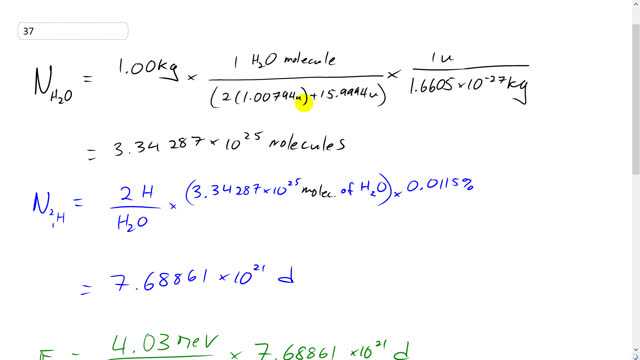 37
N_H₂O = 1.00kg × 1 H₂O molecule / (2(1.00794u)+15.9994u) × 1u / 1.6605×10⁻²⁷kg
= 3.34287×10²⁵ molecules
N_²₁H = 2H / H₂O × (3.34287×10²⁵ molec. of H₂O) × 0.0115%
= 7.68861×10²¹ d
E = 4.03 MeV × 7.68861 ×10²¹ d